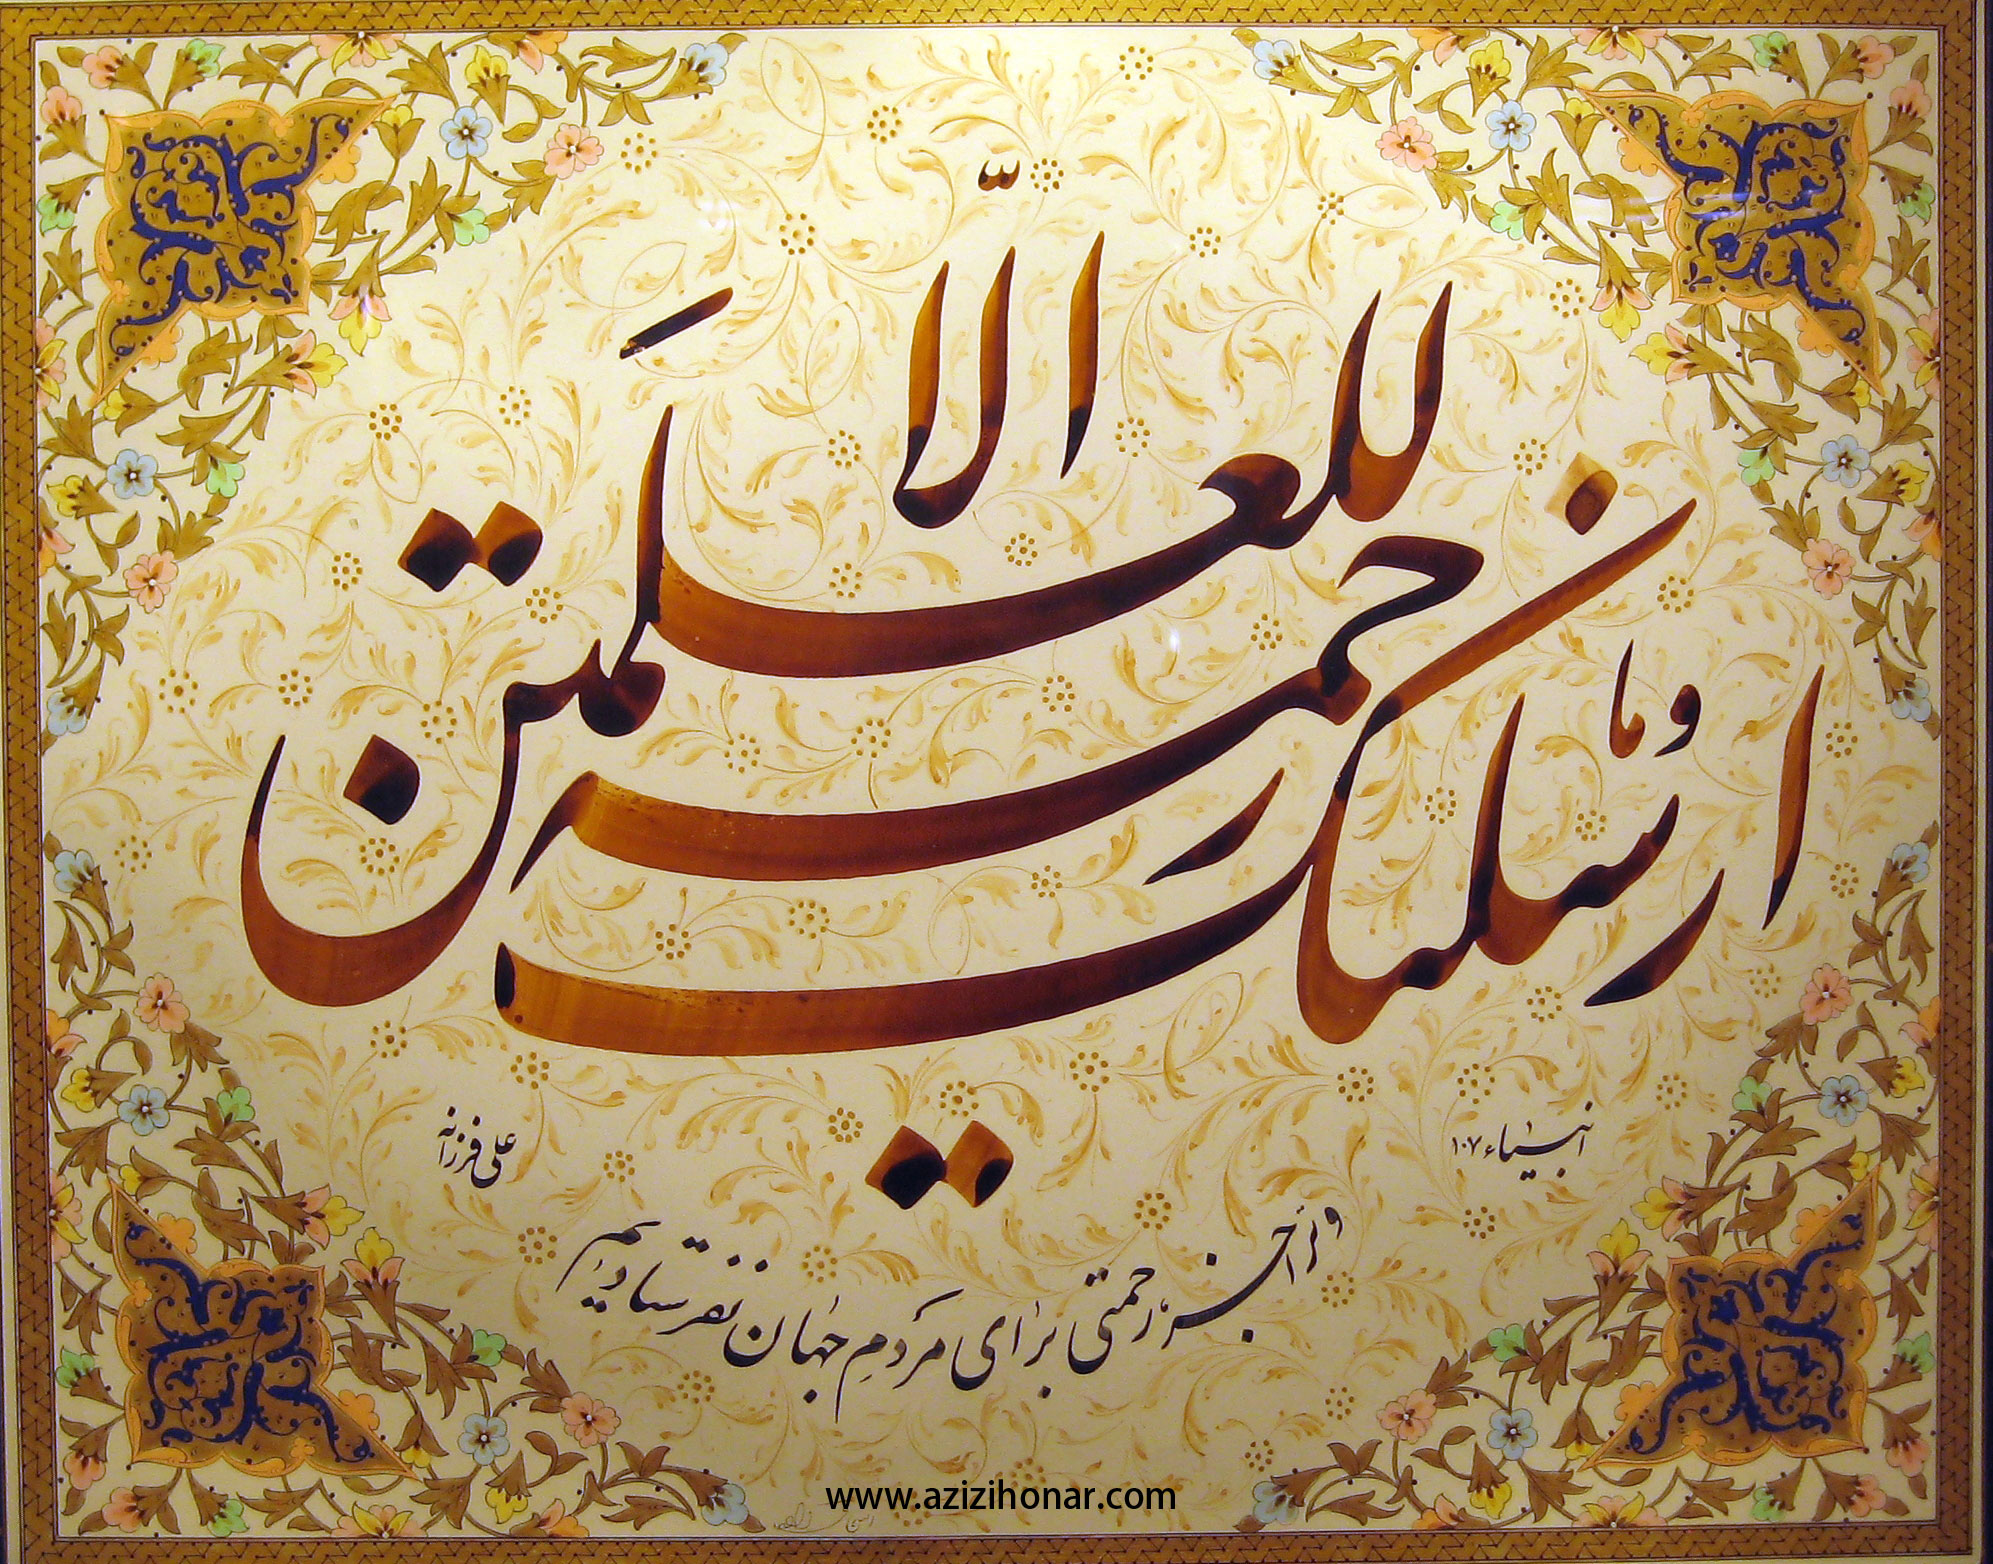 وما ارسلناک الّا رحمة للعٰلمین
انبیاء ۱۰۷
علی فرزانه
و ترا جز رحمتی برای مردم جهان نفرستادیم
www.azizihonar.com